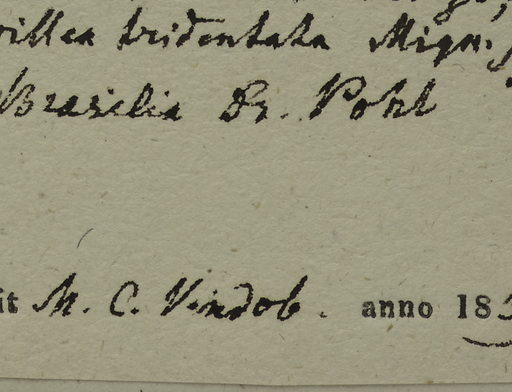 tridentata Miqu.
Brasilia Dr. Pohl
it M. C. Vindob. anno 18